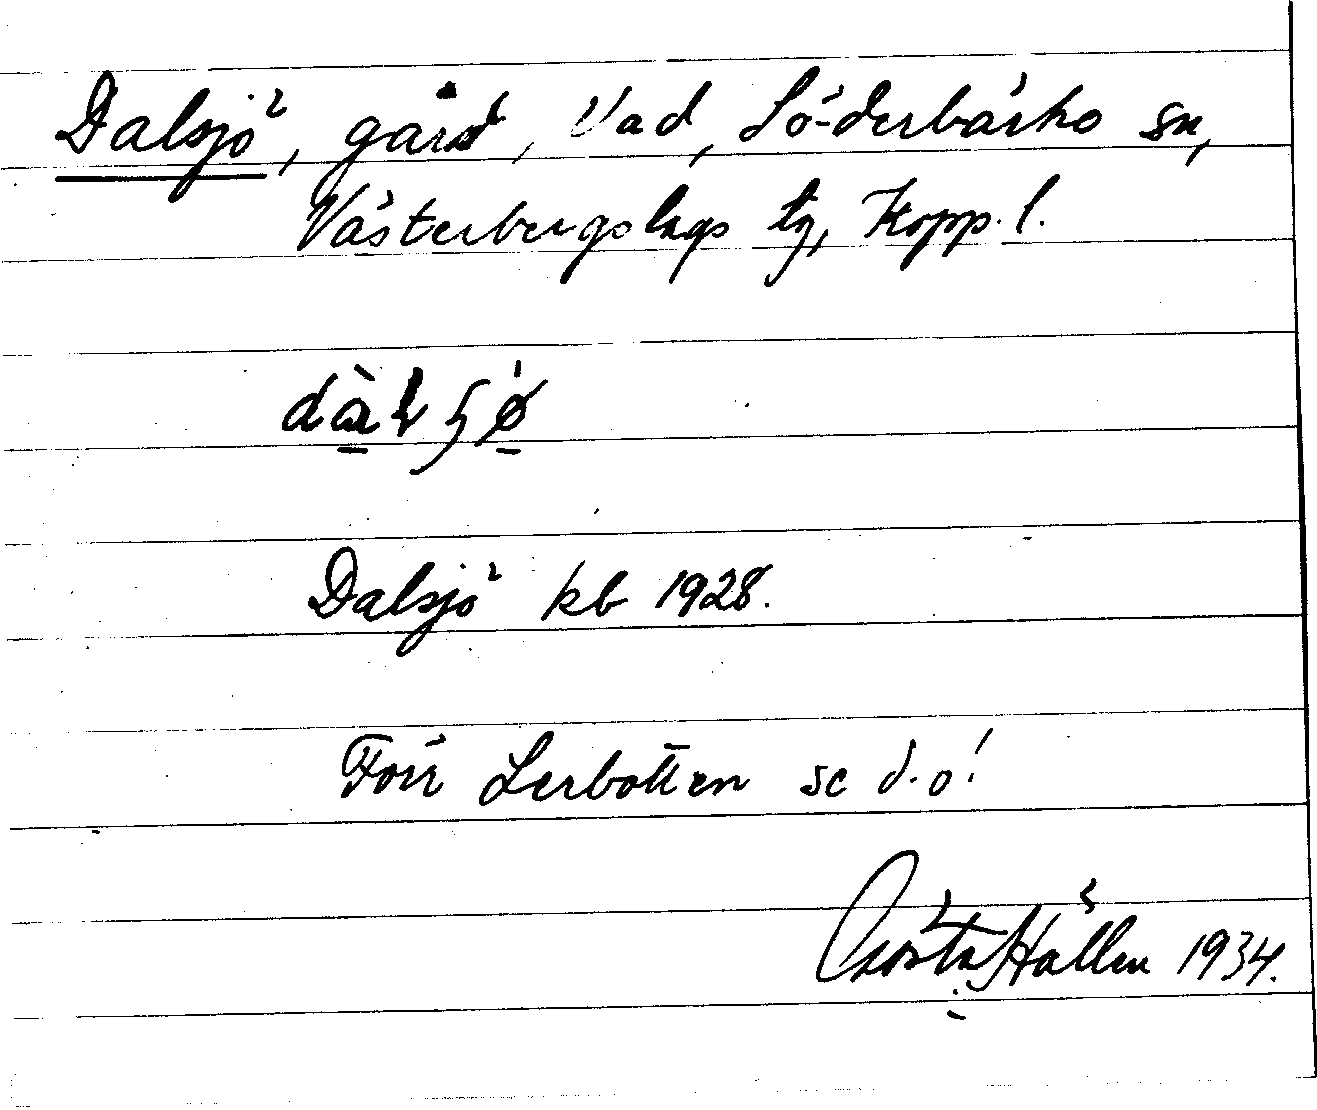 Dalsjö, gård, Vad, Söderbärke sn,
Västerbergslags tg, Kopp. l.
Dalsjö kb 1928.
Förr Lerbotten se d.o!
Gösta Hallen 1934.